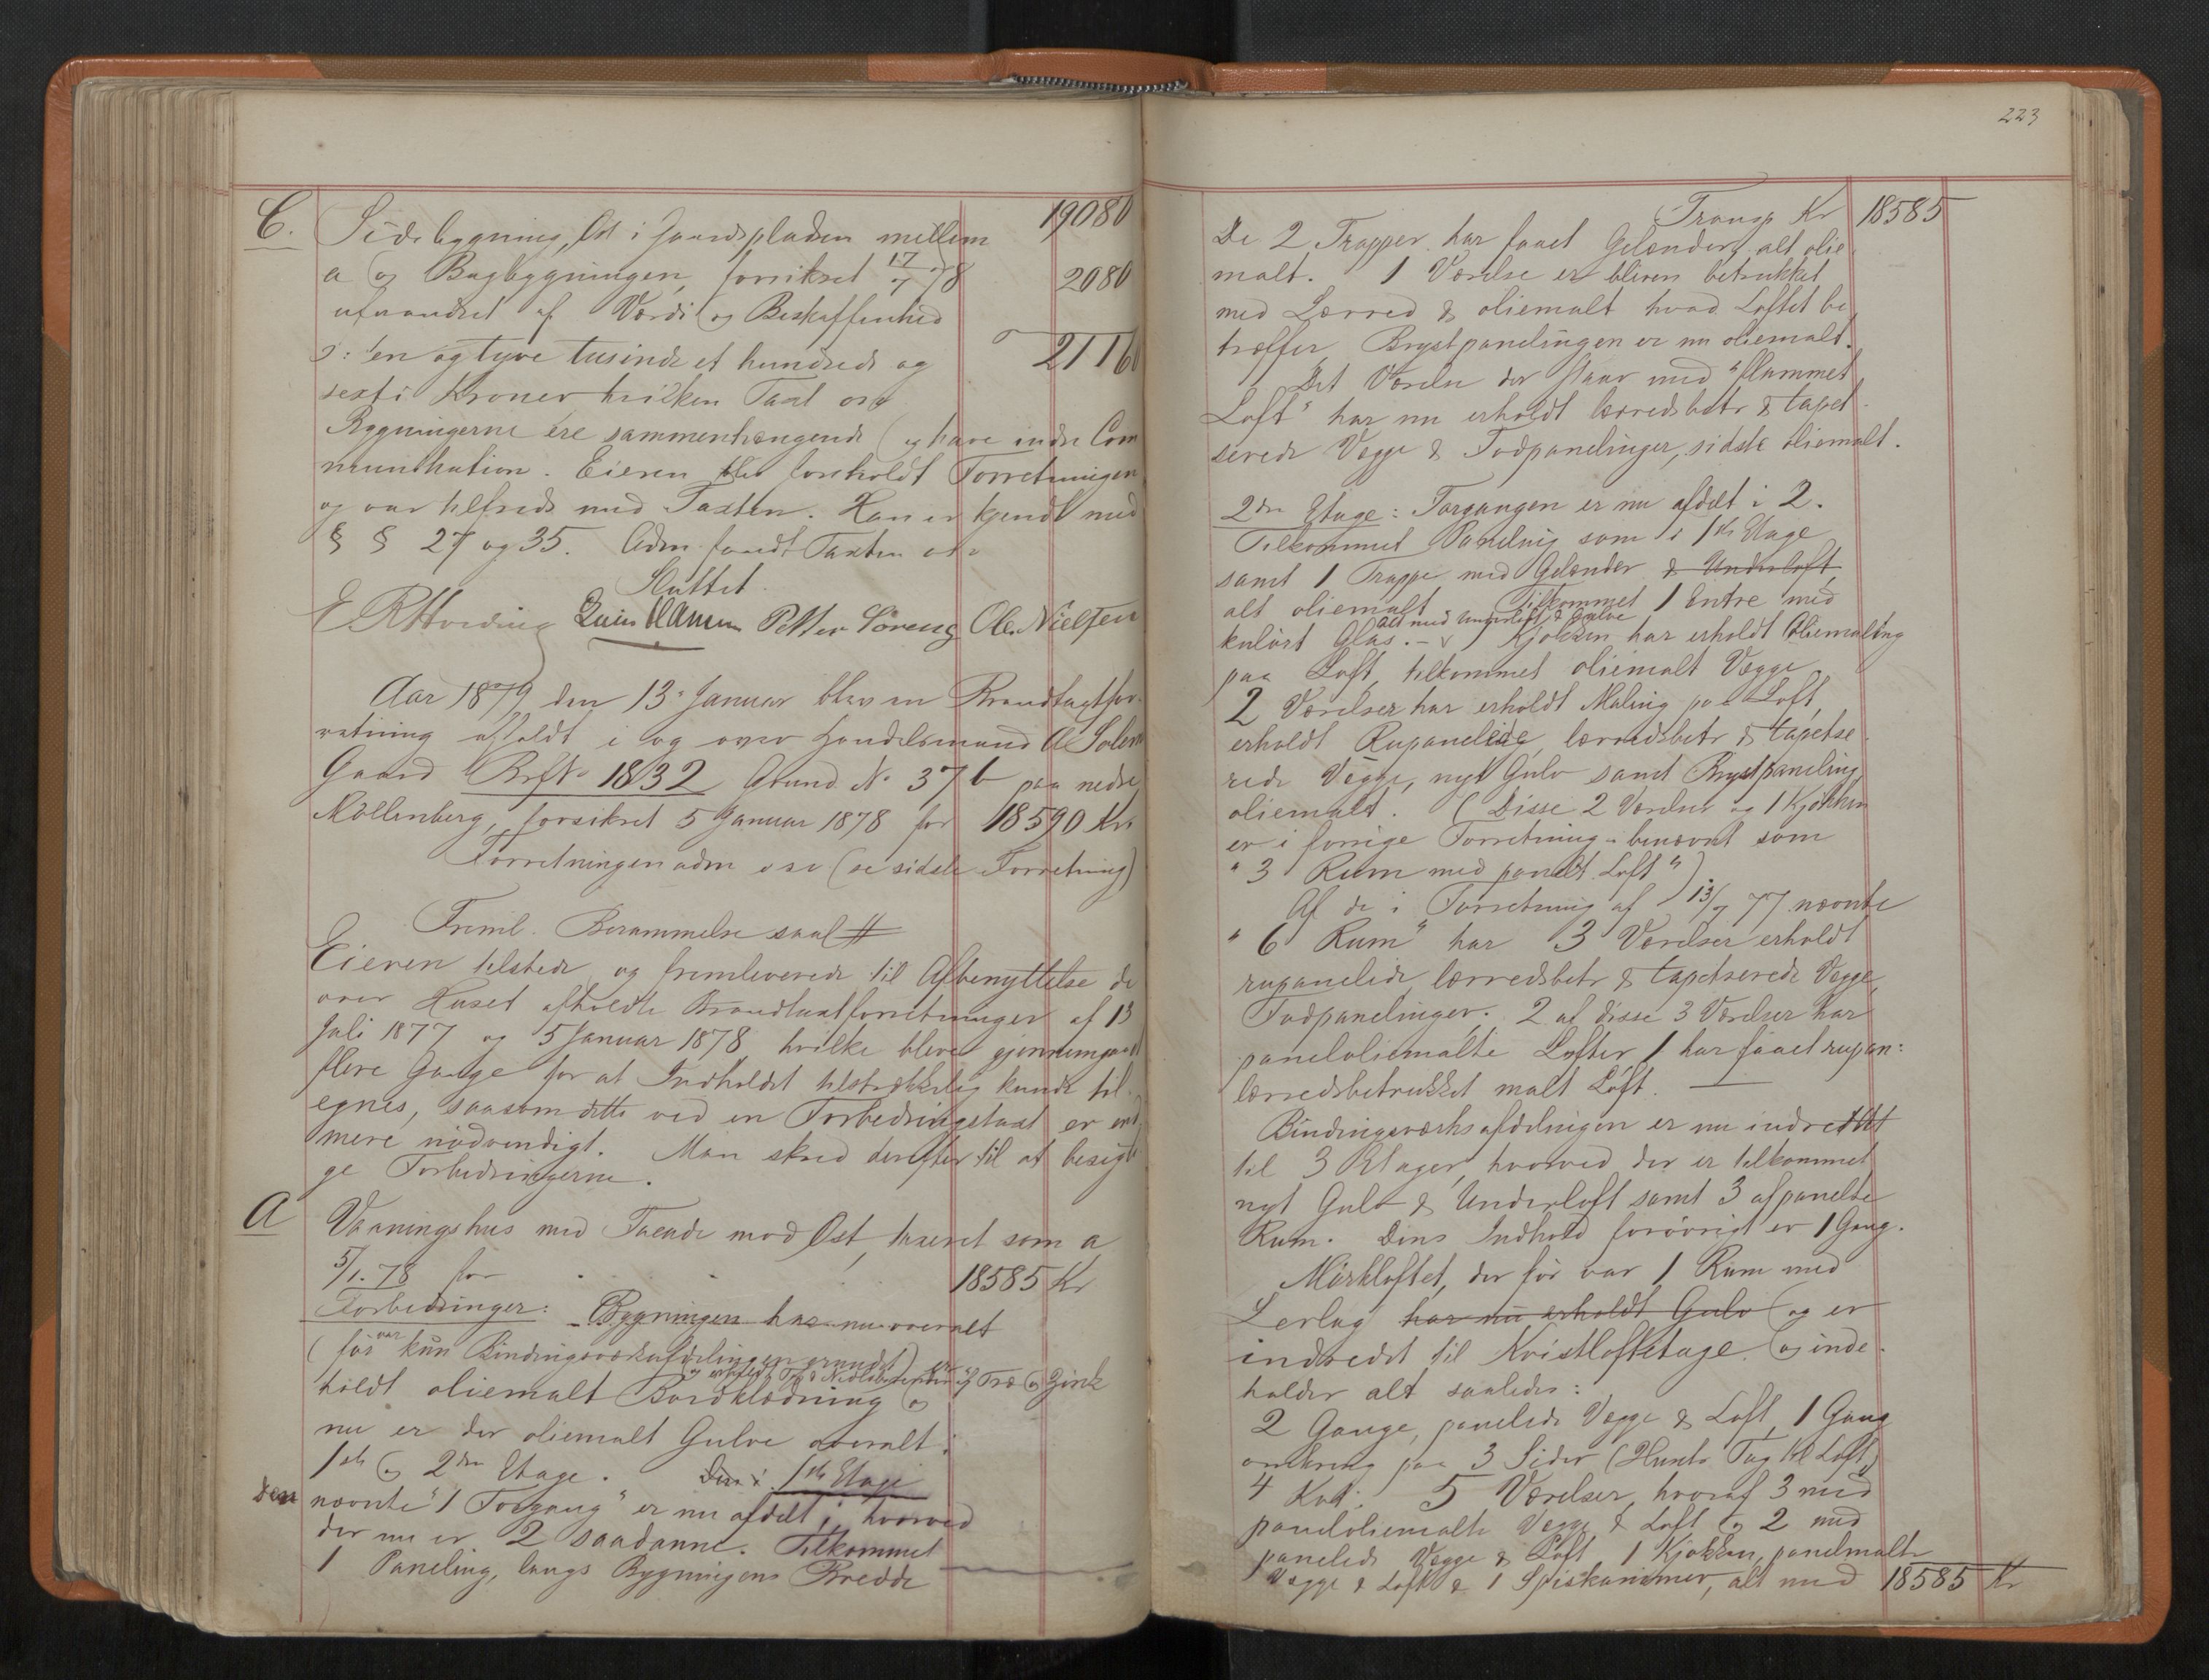 19080
C. Sidebygning, Øst i Gaardspladsen mellem
a og Bagbygningen, forsikret 17/7 78 2080
uforandret af Værdi og Beskaffenhed
ɔ: en og tyve tusinde et hundrede og 21160
sexti Kroner hvilken Taxt osv
Bygningerne ere sammenhængende og have indre Com
munikation. Eieren blev foreholdt Forretningen
og var tilfreds med Taxten. Han er kjendt med
§ § 27 og 35. Adm. fandt Taxten osv
Sluttet.
E R Hording Hansen Petter Søreng Ole Nielsen
Aar 1879 den 13. Januar blev en Brandtaxtfor-
retning afholdt i og over Handelsmand A Solem
Gaard Brf No 1832 Grund No 37 b paa nedre
Møllenberg, forsikret 5 Januar 1878 for 18590 Kr.
Forretningen adm osv (se sidste Forretning)
Freml. Berammelse saal #
Eieren tilstede og fremleverede til Afbenyttelse de
over Huset afholdte Brandtaxtforretninger af 13
Juli 1877 og 5 Januar 1878 hvilke bleve gjennemgaaet
flere Gange for at Indholdet tilstrækkelig kunde til-
egnes, saasom dette ved en Forbedringstaxt er end
mere nødvendigt. Man skred derefter til at besigt
ge Forbedringerne.
A Vaaningshus med Facade mod Øst, taxeret som a
5/1. 78 for 18585 Kr
Forbedringer: Bygningen har nu overalt
(før var kun Bindingsværksafdelingen
og erholdt Tag Nedløbsrender af Træ og Zink
holdt oliemalt Bordklædning og
nu er der oliemalt Gulve overalt i
1ste og 2den Etage. Den i 1ste Etage
den nævnte "1 Forgang" er nu afdelt, hvorved
der nu er 2 saadanne. Tilkommet
1 Paneling, langs Bygningens Bredde
223
Transp. Kr 18585
De 2 Trapper har faaet Gelænder, alt olie-
malt. 1 Værelse er bleven betrukket
med Lærred & oliemalt hvad Loftet be
træffer. Brystpanelingen er nu oliemalt.
Det Værelse der staar med "flammet
Loft" har nu erholdt lærredsbetr & tapet-
serede Vægge & Fodpanelinger, sidste oliemalt.
2den Etage: Forgangen er nu afdelt i 2.
Tilkommet Paneling som i 1ste Etage
samt 1 Trappe med Gelænder & Underloft,
alt oliemalt. Tilkommet 1 Entre med
alt med Underloft & Gulve
kulørt Glas. - 1 Kjøkken har erholdt Oliemaling
paa Loft, tilkommet oliemalt Vægge.
2 Værelser har erholdt Maling paa Loft,
erholdt Rupanelede, lærredsbetr & tapetse-
rede Vægge, nyt Gulv samt Brystpaneling
oliemalt. (Disse 2 Værelser og 1 Kjøkken
er i forrige Forretning benævnt som
"3 Rum med panelt Loft").
Af de i Forretning af 13/7 77 nævnte
"6 Rum" har 3 Værelser erholdt
rupanelede, lærredsbetr & tapetserede Vægge,
Fodpanelinger. 2 af disse 3 Værelser har
paneloliemalte Lofter, 1 har faaet rupan:
lærredsbetrukket malt Loft.
Bindingsværksafdelingen er nu indrettet
til 3 Etager, hvorved der er tilkommet
nyt Gulv & Underloft samt 3 afpanelte
Rum. Dens Indhold forøvrigt er 1 Gang.
Mørkloftet, der før var 1 Rum med
Lerlag har nu erholdt Gulv og er
indredet til Kvistloftetage og inde-
holder alt saaledes:
2 Gange, panelede Vægge & Loft, 1 Gang
omkring paa 3 Sider (Hunts Tag til Loft,)
4 Kot. 5 Værelser, hvoraf 3 med
paneloliemalte Vægge & Loft og 2 med
panelede Vægge & Loft, 1 Kjøkken, panelmalte
Vægge & Loft & 1 Spiskammer, alt med 18585 Kr